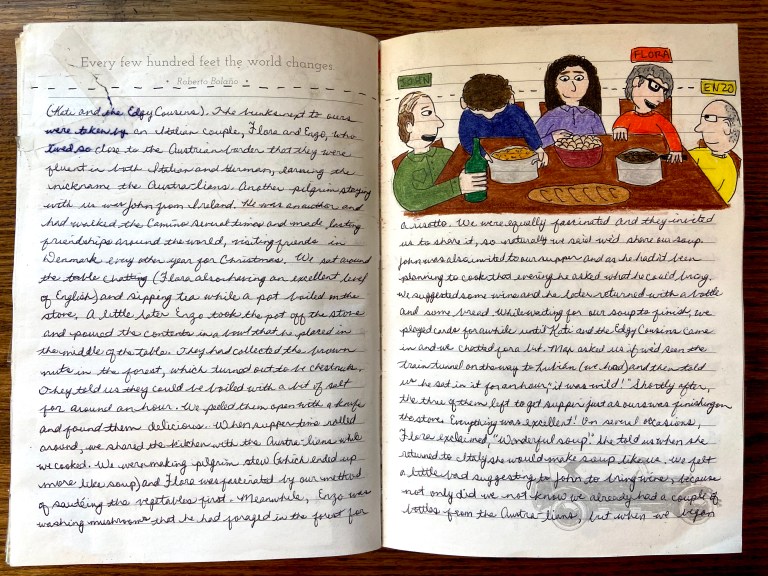 Every few hundred feet the world changes.
• Roberto Bolaño •
(Kati and the Edgy Cousins). The bunks next to ours
were taken by an Italian couple, Flora and Enzo, who
lived so close to the Austrian border that they were
fluent in both Italian and German, earning the
nickname the Austra-lians. Another pilgrim staying
with us was John from Ireland. He was an author and
had walked the Camino several times and made lasting
friendships around the world, visiting friends in
Denmark every other year for Christmas. We sat around
the table chatting (Flora also having an excellent level
of English) and sipping tea while a pot boiled on the
stove. A little later Enzo took the pot off the stove
and poured the contents in a bowl that he placed in
the middle of the table. They had collected the brown
nuts in the forest, which turned out to be chestnuts.
They told us they could be boiled with a bit of salt
for around an hour. We peeled them open with a knife
and found them delicious. When supper time rolled
around, we shared the kitchen with the Austra-lians while
we cooked. We were making pilgrim stew (which ended up
more like soup) and Flora was fascinated by our method
of sautéing the vegetables first. Meanwhile, Enzo was
washing mushrooms that he had foraged in the forest for
JOHN
FLORA
ENZO
a risotto. We were equally fascinated and they invited
us to share it, so naturally we said we'd share our soup.
John was also invited to our supper and as he hadn't been
planning to cook that evening he asked what he could bring.
We suggested some wine and he later returned with a bottle
and some bread. While waiting for our soup to finish, we
played cards for awhile until Kati and the Edgy Cousins came
in and we chatted for a bit. Max asked us if we'd seen the
train tunnel on the way to Lubian (we had) and then told
us he sat in it for an hour, "it was wild!" Shortly after,
the three of them left to get supper just as ours was finishing on
the stove. Everything was excellent! On several occasions,
Flora exclaimed, "Wonderful soup!" She told us when she
returned to Italy she would make soup like us. We felt
a little bad suggesting to John to bring wine, because
not only did we not know we already had a couple of
bottles from the Austra-lians, but when we began